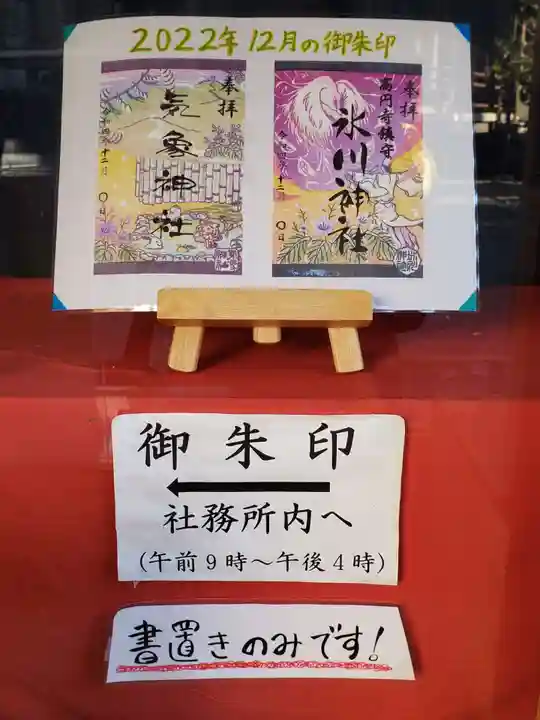 2022年12月の御朱印
奉拝
気象神社
令和四年十二月〇日
奉拝
高円寺鎮守
氷川神社
令和四年十二月〇日
御朱印
社務所内へ
(午前9時～午後4時)
書置きのみです!